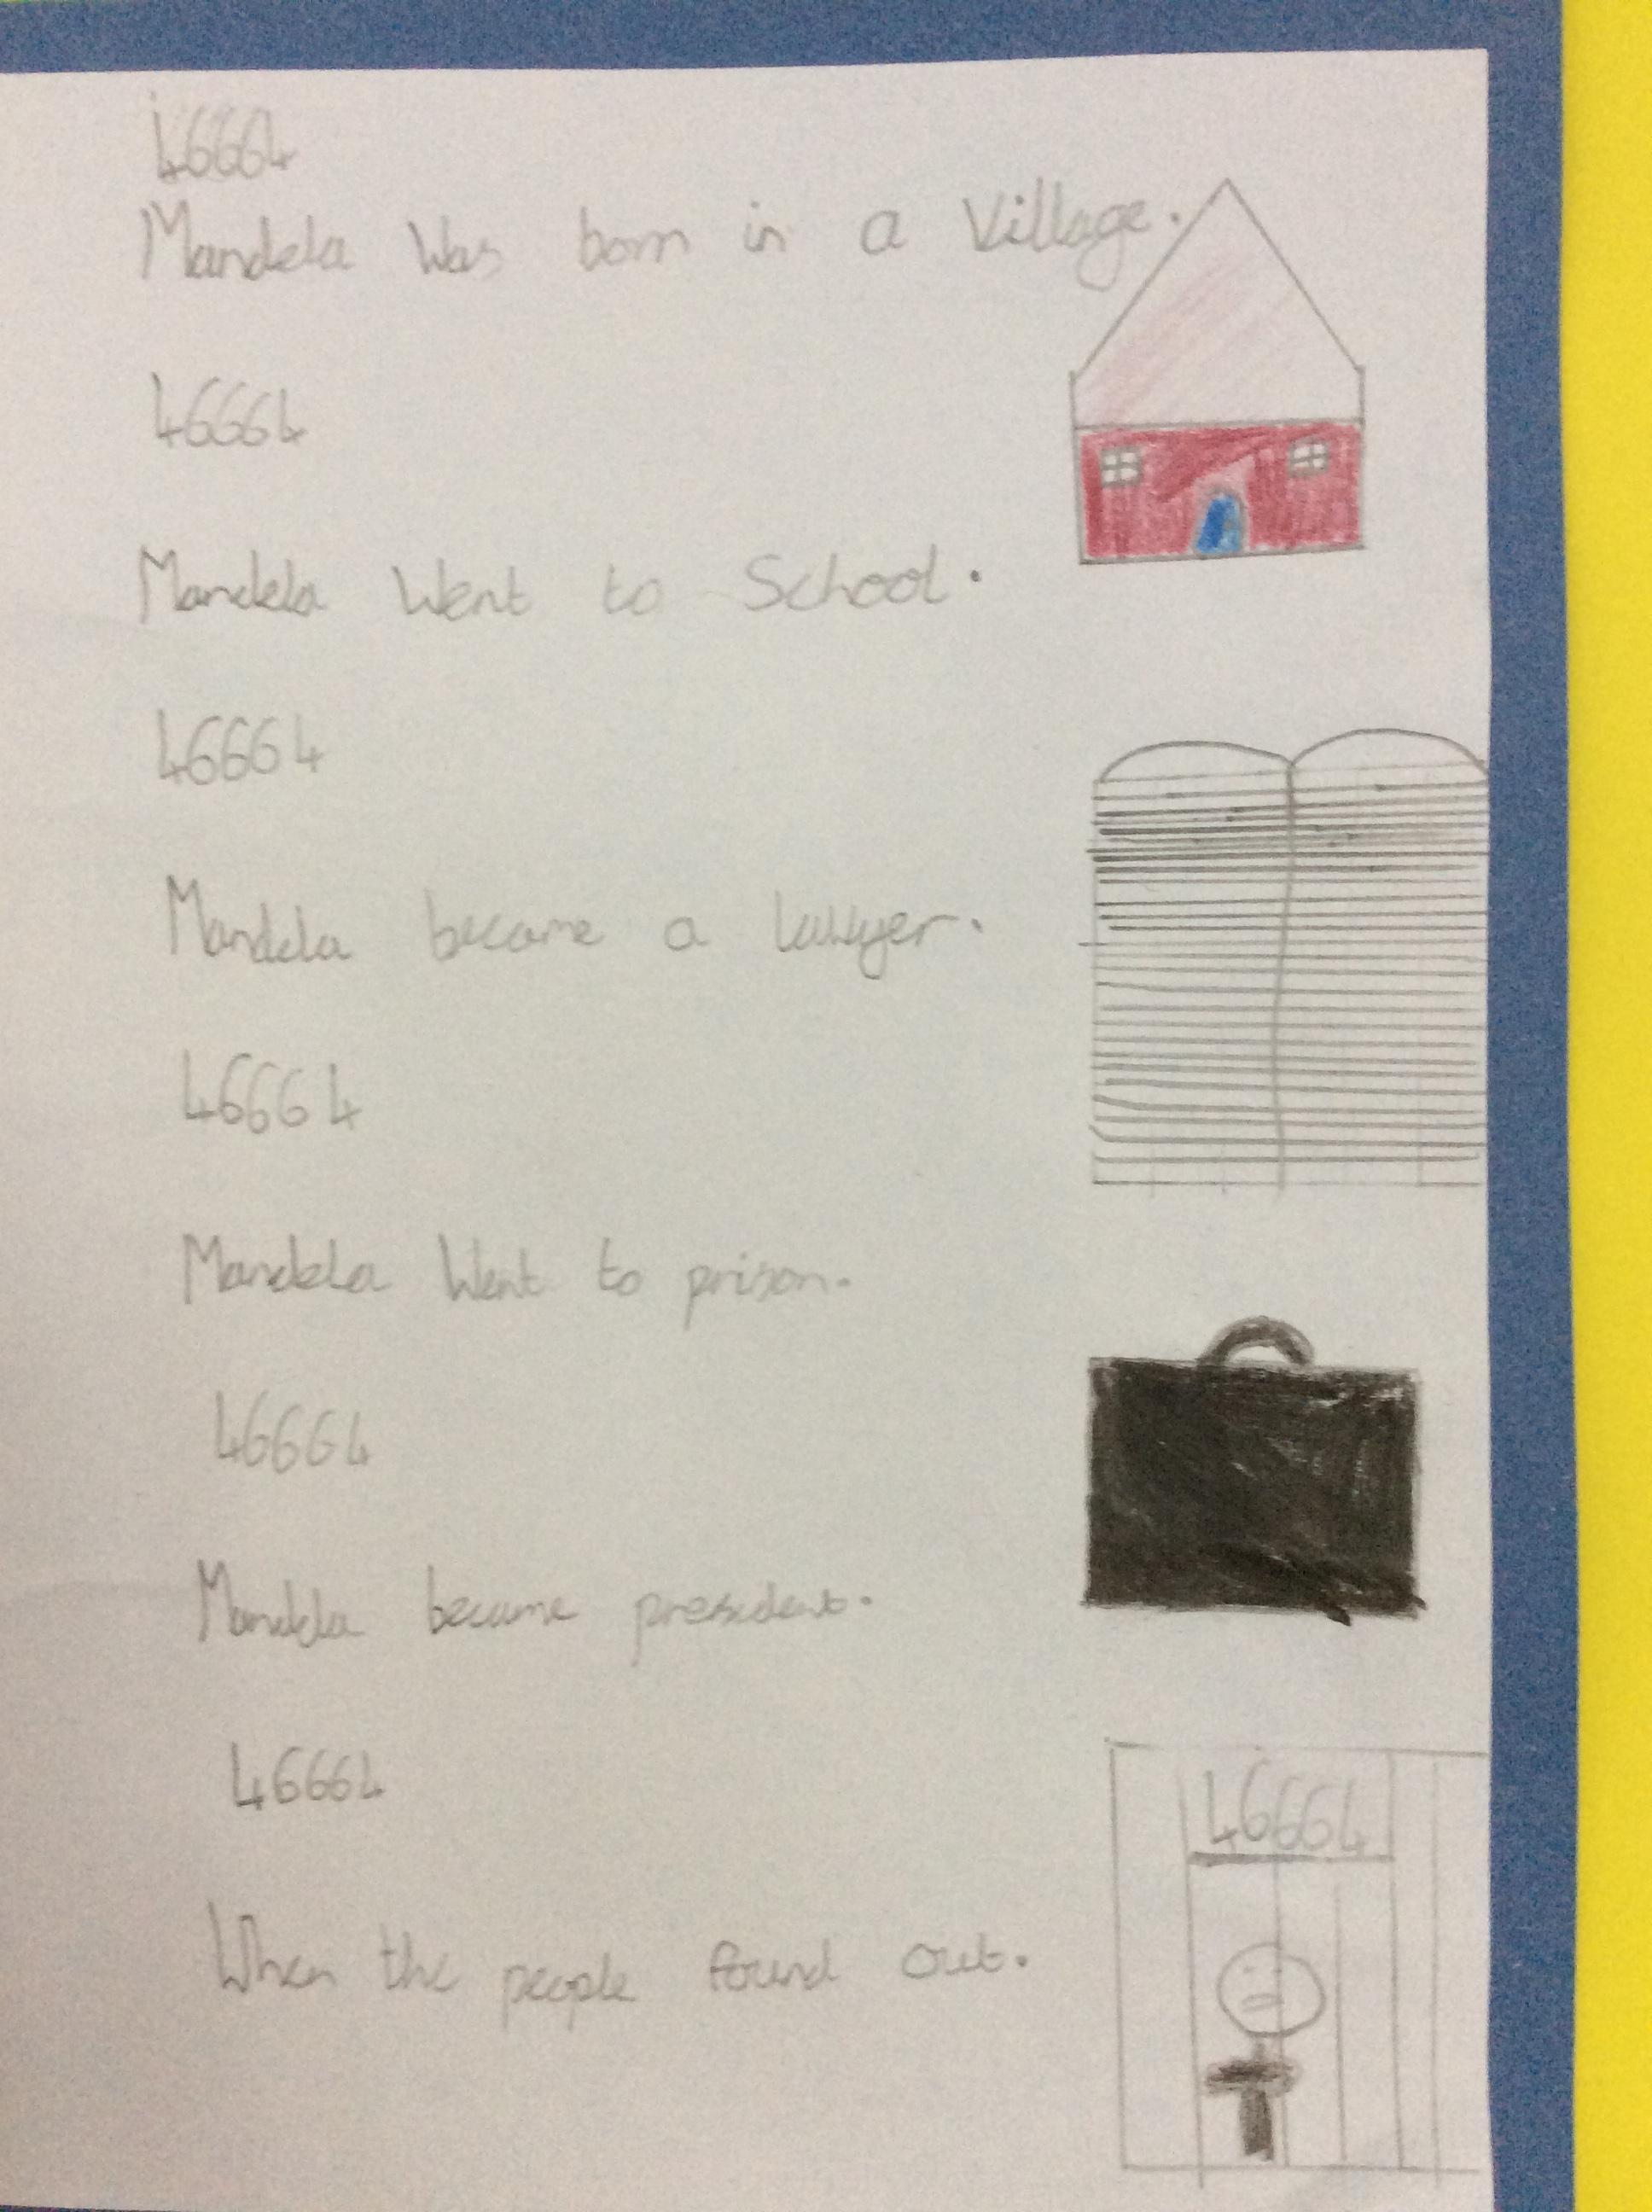 46664
Mandela Was born in a Village.
46664
Mandela Went to School.
46664
Mandela became a lawyer.
46664
Mandela Went to prison.
46664
Mandela became president.
46664
46664
When the people found out.